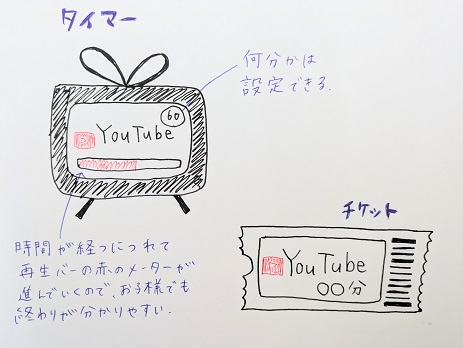 タイマー
何分かは
設定できる.
60
YouTube
時間が経つにつれて
再生バーの赤のメーターが
進んでいくので、お子様でも
終わりが分かりやすい.
チケット
YouTube
〇〇分